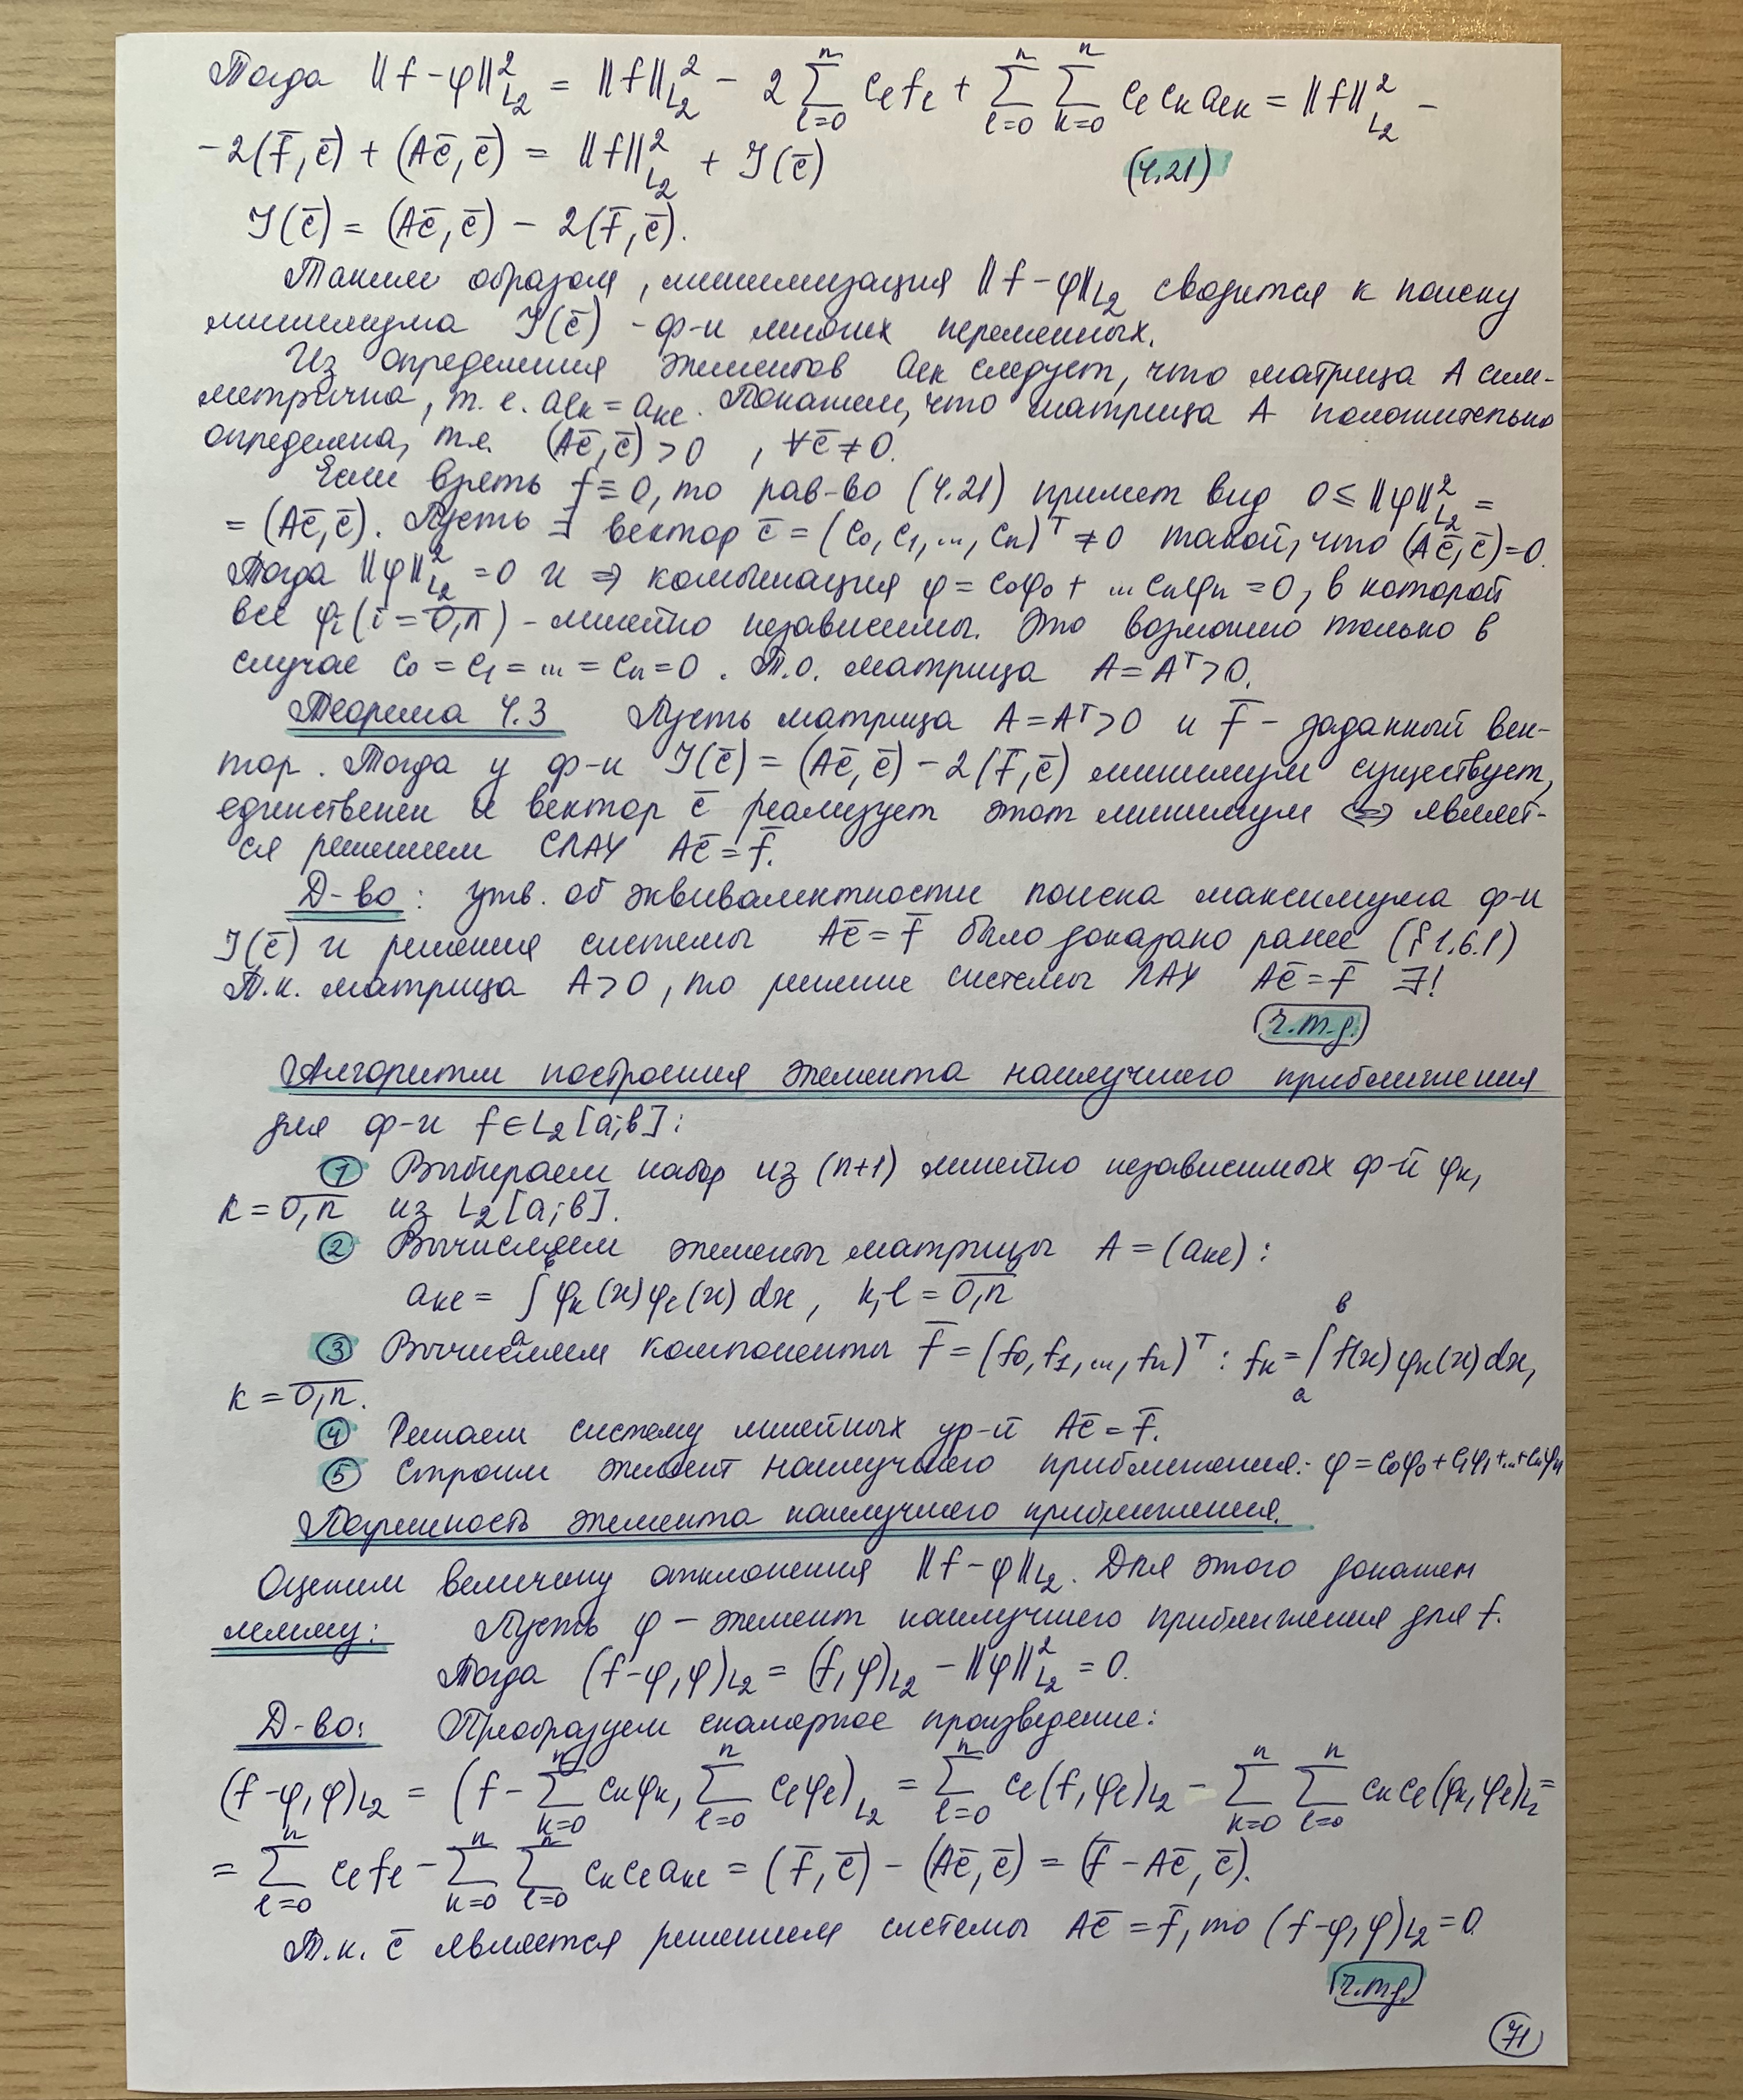 Тогда ‖f-φ‖²_L₂ = ‖f‖²_L₂ - 2 ∑_{l=0}^{n} c_l f_l + ∑_{l=0}^{n} ∑_{k=0}^{n} c_l c_k a_lk = ‖f‖²_L₂ -
- 2(f̄, c̄) + (Ac̄, c̄) = ‖f‖²_L₂ + J(c̄) (4.21)
J(c̄) = (Ac̄, c̄) - 2(f̄, c̄).
Таким образом, минимизация ‖f-φ‖_L₂ сводится к поиску
минимума J(c̄) - ф-и многих переменных.
Из определения элементов a_lk следует, что матрица A сим-
метрична, т.е. a_lk = a_kl. Покажем, что матрица A положительно
определена, т.е. (Ac̄, c̄) > 0, ∀c̄ ≠ 0.
Если взять f ≡ 0, то рав-во (4.21) примет вид 0 ≤ ‖φ‖²_L₂ =
= (Ac̄, c̄). Пусть ∃ вектор c̄ = (c₀, c₁, ..., cₙ)ᵀ ≠ 0 такой, что (Ac̄, c̄) = 0.
Тогда ‖φ‖²_L₂ = 0 и ⇒ комбинация φ = c₀φ₀ + ... cₙφₙ = 0, в которой
все φᵢ (i = 0,n) - линейно независимы. Это возможно только в
случае c₀ = c₁ = ... = cₙ = 0. Т.о. матрица A = Aᵀ > 0.
Теорема 4.3 Пусть матрица A = Aᵀ > 0 и f̄ - заданный век-
тор. Тогда у ф-и J(c̄) = (Ac̄, c̄) - 2(f̄, c̄) минимум существует,
единственен и вектор c̄ реализует этот минимум ⇔ являет-
ся решением СЛАУ Ac̄ = f̄.
Д-во: утв. об эквивалентности поиска максимума ф-и
J(c̄) и решения системы Ac̄ = f̄ было доказано ранее (§1.6.1)
Т.к. матрица A > 0, то решение системы ЛАУ Ac̄ = f̄ ∃!
ч.т.д.
Алгоритм построения элемента наилучшего приближения
для ф-и f ∈ L₂[a;b]:
① Выбираем набор из (n+1) линейно независимых ф-й φₖ,
k = 0,n из L₂[a;b].
② Вычисляем элементы матрицы A = (a_kl):
a_kl = ∫_a^b φₖ(x)φ_l(x)dx, k,l = 0,n
③ Вычисляем компоненты f̄ = (f₀, f₁, ..., fₙ)ᵀ: fₖ = ∫_a^b f(x)φₖ(x)dx,
k = 0,n.
④ Решаем систему линейных ур-й Ac̄ = f̄.
⑤ Строим элемент наилучшего приближения: φ = c₀φ₀ + c₁φ₁ + ... + cₙφₙ
Погрешность элемента наилучшего приближения.
Оценим величину отклонения ‖f-φ‖_L₂. Для этого докажем
лемму: Пусть φ - элемент наилучшего приближения для f.
Тогда (f-φ, φ)_L₂ = (f, φ)_L₂ - ‖φ‖²_L₂ = 0.
Д-во: Преобразуем скалярное произведение:
(f-φ, φ)_L₂ = (f - ∑_{k=0}^{n} cₖφₖ, ∑_{l=0}^{n} c_lφ_l)_L₂ = ∑_{l=0}^{n} c_l(f, φ_l)_L₂ - ∑_{k=0}^{n} ∑_{l=0}^{n} cₖc_l(φₖ, φ_l)_L₂ =
= ∑_{l=0}^{n} c_l f_l - ∑_{k=0}^{n} ∑_{l=0}^{n} cₖc_l a_kl = (f̄, c̄) - (Ac̄, c̄) = (f̄ - Ac̄, c̄).
Т.к. c̄ является решением системы Ac̄ = f̄, то (f-φ, φ)_L₂ = 0
ч.т.д.
71